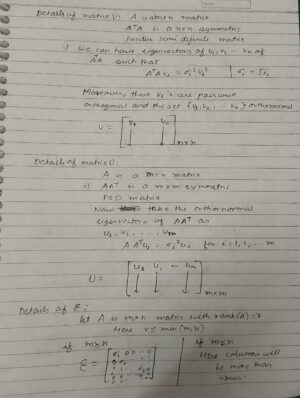 Details of matrix V: A is mxn matrix
AᵀA is a nxn symmetric
positive semi definite matrix
⇒ we can have eigenvectors of v₁, v₂ -- vₙ of
AᵀA such that
AᵀA vᵢ = σᵢ² vᵢ | σᵢ = √λᵢ
Moreover, these vᵢ's are pairwise
orthogonal and the set {v₁, v₂, .. vₙ} orthonormal
V = [v₁ vₙ] nxn
Details of matrix U:
A is a mxn matrix
⇒ AAᵀ is a mxm symmetric
PSD matrix
Now take the orthonormal
eigenvectors of AAᵀ as
u₁, u₂, .... uₘ
AAᵀuᵢ = σᵢ² uᵢ for i=1,2, -- m
U = [u₁ uᵢ -- uₘ] mxm
Details of Σ:
let A is mxn matrix with rank(A)=r
Here r ≤ min(m,n)
if m>n
Σ =
if m≤n
Here columns will
be more than
rows.